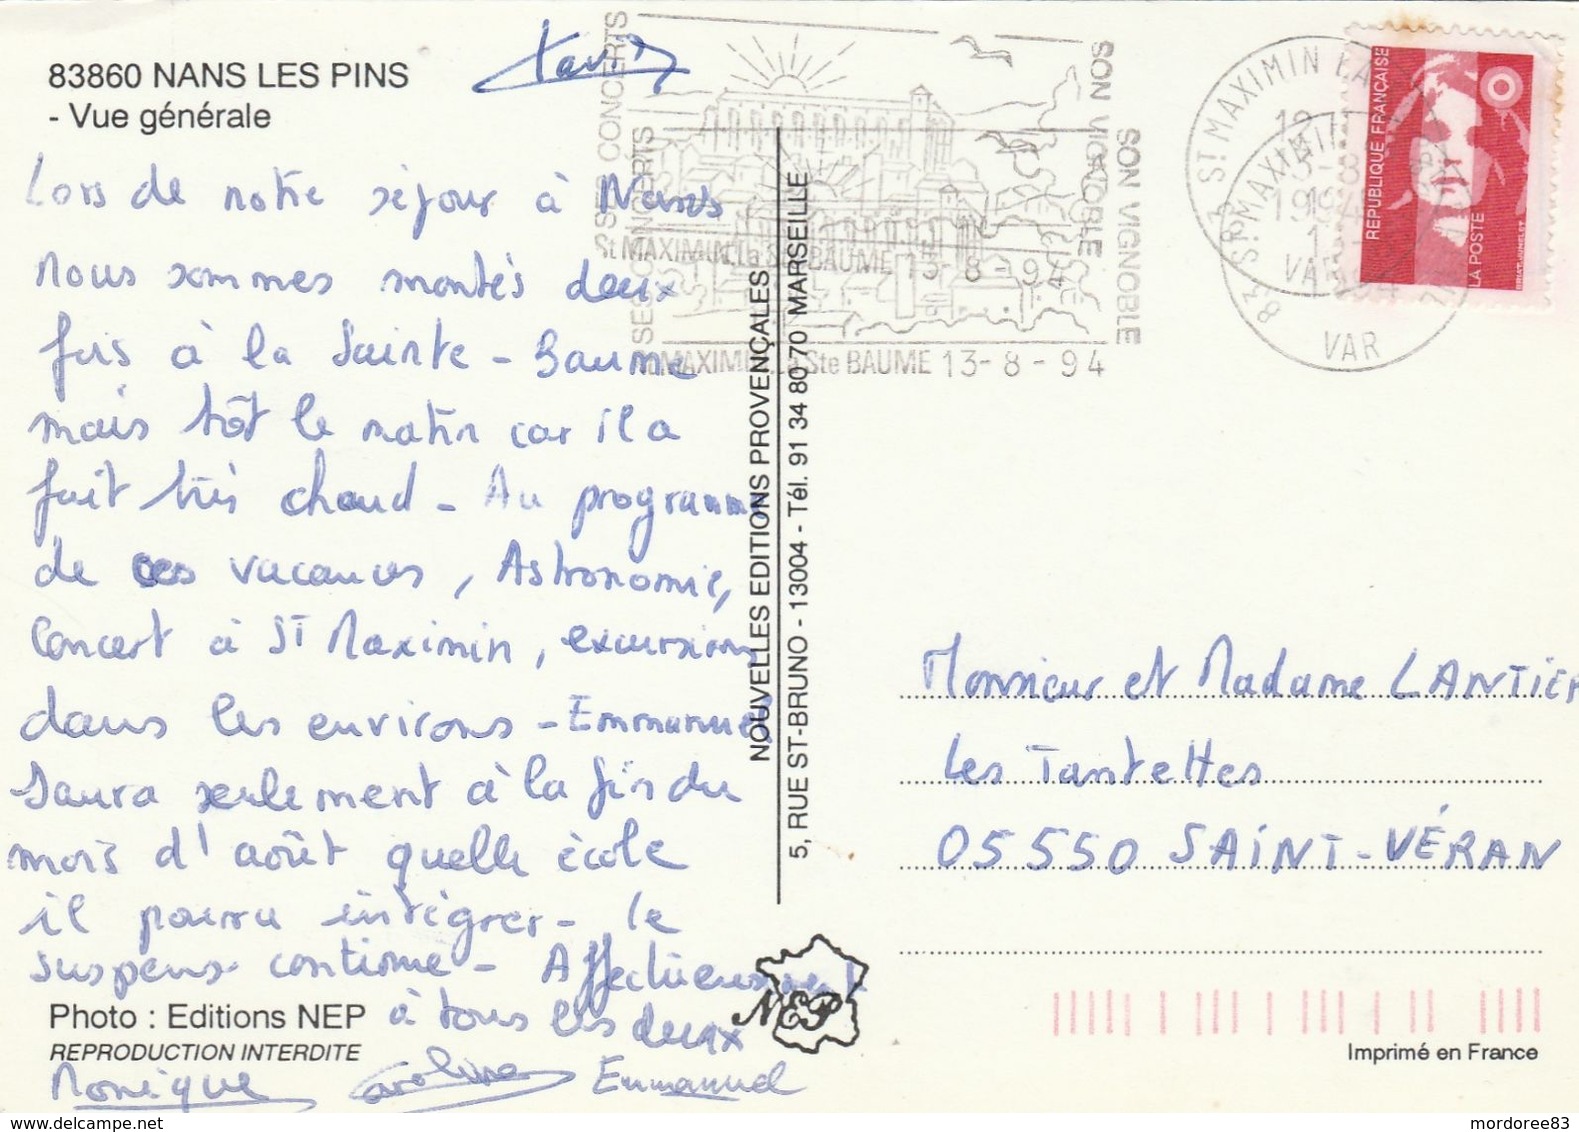 83860 NANS LES PINS
- Vue générale
Lors de notre séjour à Nans
nous sommes montés deux
fois à la Sainte-Baume
mais tôt le matin car il a
fait très chaud - Au programme
de ces vacances, Astronomie,
Concert à St Maximin, excursions
dans les environs - Emmanuel
saura seulement à la fin du
mois d'août quelle école
il pourra intégrer - le
suspens continue - Affectueusement
à tous les deux
Monique Caroline Emmanuel
Photo : Editions NEP
REPRODUCTION INTERDITE
NOUVELLES EDITIONS PROVENÇALES
5, RUE ST-BRUNO - 13004 - Tél. 91 34 80 70 MARSEILLE
NEP
SES CONCERTS
SON VIGNOBLE
St MAXIMIN La Ste BAUME 13-8-94
SES CONCERTS
SON VIGNOBLE
St MAXIMIN La Ste BAUME 13-8-94
83 ST MAXIMIN LA
1994
VAR
83 ST MAXIMIN
VAR
REPUBLIQUE FRANÇAISE
LA POSTE
Monsieur et Madame LANTIER
Les Tantettes
05550 SAINT-VÉRAN
Imprimé en France
mordoree83